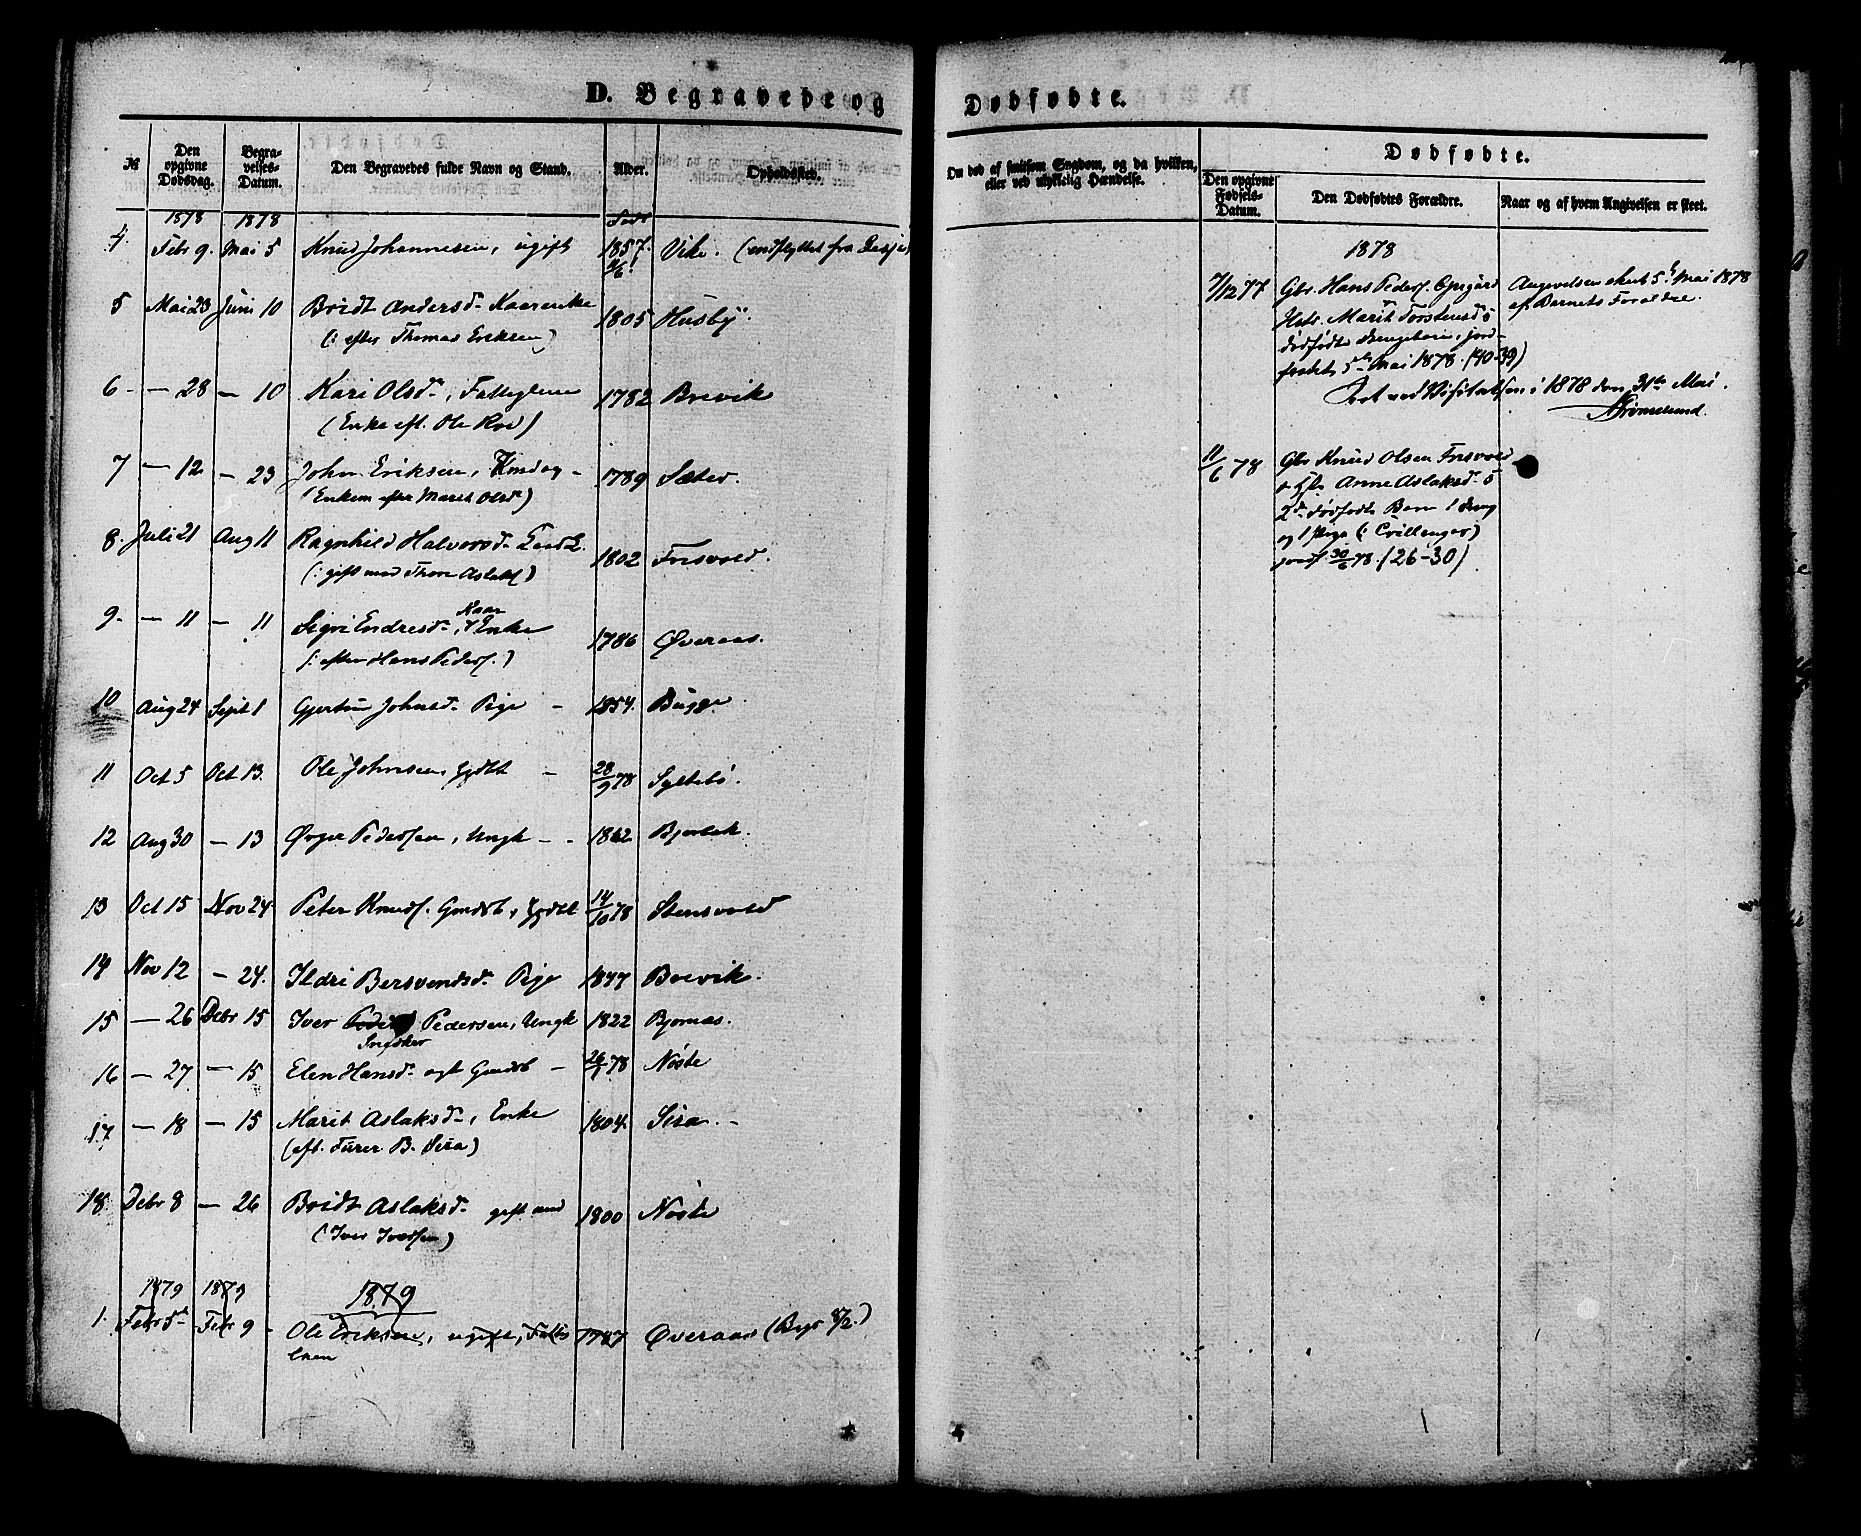 D. Begravede og
Dødfødte.
№
Den opgivne Dødsdag.
Begravelses-Datum.
Den Begravedes fulde Navn og Stand.
Alder.
Opholdssted.
Om død af smitsom Sygdom, og da hvilken, eller ved ulykkelig Hændelse.
Dødfødte.
Den opgivne Fødsels-Datum.
Den Dødfødtes Forældre.
Naar og af hvem Angivelsen er skeet.
1878 1878
4. Febr 9. Mai 5 Knud Johannesen, ugift 1857. 11/6 Vike. (indflyttet fra Lesje)
5 Mai 23 Juni 10 Bridt Andersd. Kaarenke 1805 Husby
(: efter Thomas Eriksen)
6 - — 28 — 10 Kari Olsd., 1782 Brevik
(Enke eft. Ole Roe)
7 — 12 — 23 John Eriksen, 1789 Sæter
(Enkem efter Marit Olsd.)
8. Juli 21 Aug 11 Ragnhild Halvorsd. 1802 Frisvold.
(: gift med Thore Aslaks.)
9. — 11 — 11 Sigri Endresd., Kaar Enke 1786 Øveraas.
(: efter Hans Peders.)
10 Aug 24 Sept 1 Gjertru Johnsd. Pige - 1854. Bugge
11 Oct 5 Oct 13. Ole Johnsen, - 28/9 78 Syltebø.
12 Aug 30 — 13 Pedersen, Ungk - 1862
13 Oct 15 Nov 24. Peter Knuds. Gmdsb, 14/10 78 Stensvold
14 Nov 12 — 24. Ildri Bersvendsd. Pige 1877 Brevik.
15 — 26 Debr 15 Iver Pedersen, Ungk 1822 Bjørnas.
16 — 27 — 15 Elen Hansd. Gmdsb - 78 Nøste
17 — 18 — 15 Marit Aslaksd., Enke 1804. Sira. -
(eft. Turer B. Sira)
18. Debr 8 — 26 Bridt Aslaksd. gift med 1800 Nøste
(: Iver Iversen)
1879 1879 1879
1. Febr 5 Febr 9 - Ole Eriksen, ugift, 1787 Øveraas (Begr 9/2.)
1878
7/12 77 Gbr. Hans Peders. Opigård Angivelsen skeet 5 Mai 1878
Hstr. Marit Torstensd. af Barnets Forældre.
dødfødte Drengebarn, jord-
fæstet 5te Mai 1878. (40-39)
Seet ved Visitatsen i 1878 den 31te Mai.
11/6 78 Gbr Knud Olsen Frisvold
Anne Aslaksd.
2de dødfødte Børn 1 dreng
og 1 Pige (: Tvillinger)
jordf 30/6 78. (26-30)